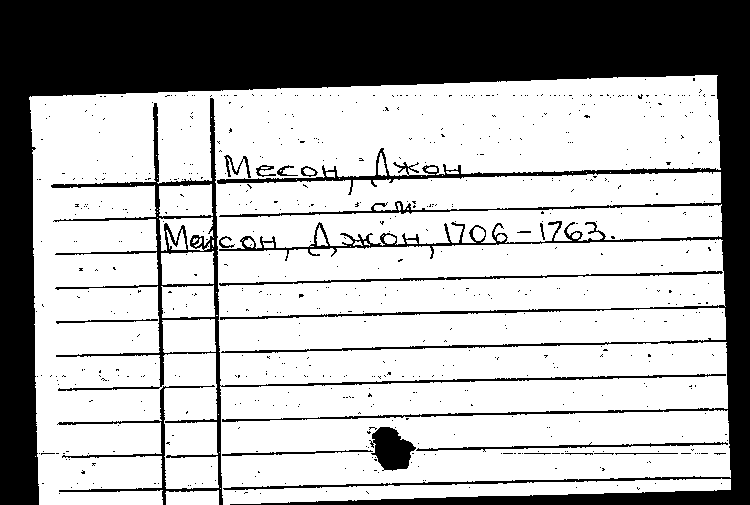 Месон, Джон
см.
Мейсон, Джон, 1706-1763.